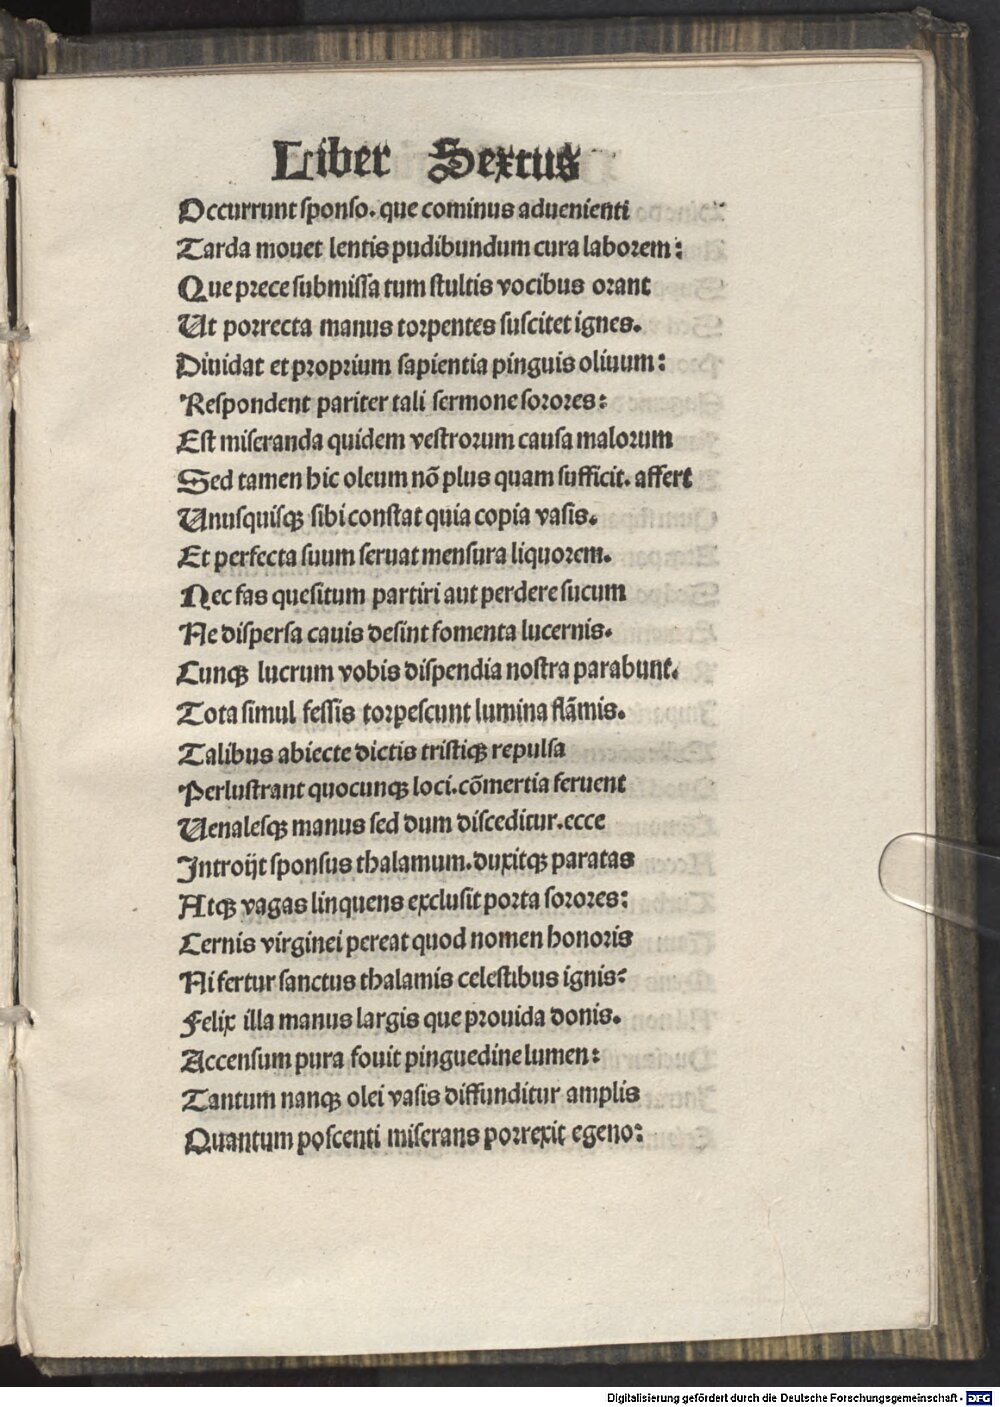 Liber Sextus
Occurrunt sponso. que cominus aduenienti
Tarda mouet lentis pudibundum cura laborem:
Que prece submissa tum stultis vocibus orant
Ut porrecta manus torpentes suscitet ignes.
Diuidat et proprium sapientia pinguis oliuum:
Respondent pariter tali sermone sorores:
Est miseranda quidem vestrorum causa malorum
Sed tamen hic oleum nõ plus quam sufficit. affert
Unusquisqꝫ sibi constat quia copia vasis.
Et perfecta suum seruat mensura liquorem.
Nec fas quesitum partiri aut perdere sucum
Ne dispersa cauis desint fomenta lucernis.
Cunqꝫ lucrum vobis dispendia nostra parabunt.
Tota simul fessis torpescunt lumina flãmis.
Talibus abiecte dictis tristiqꝫ repulsa
Perlustrant quocunqꝫ loci. cõmertia feruent
Uenalesqꝫ manus sed dum disceditur. ecce
Introijt sponsus thalamum. duxitqꝫ paratas
Atqꝫ vagas linquens exclusit porta sorores:
Cernis virginei pereat quod nomen honoris
Ni fertur sanctus thalamis celestibus ignis:
Felix illa manus largis que prouida donis.
Accensum pura fouit pinguedine lumen:
Tantum nanqꝫ olei vasis diffunditur amplis
Quantum poscenti miserans porrexit egeno:
Digitalisierung gefördert durch die Deutsche Forschungsgemeinschaft - DFG